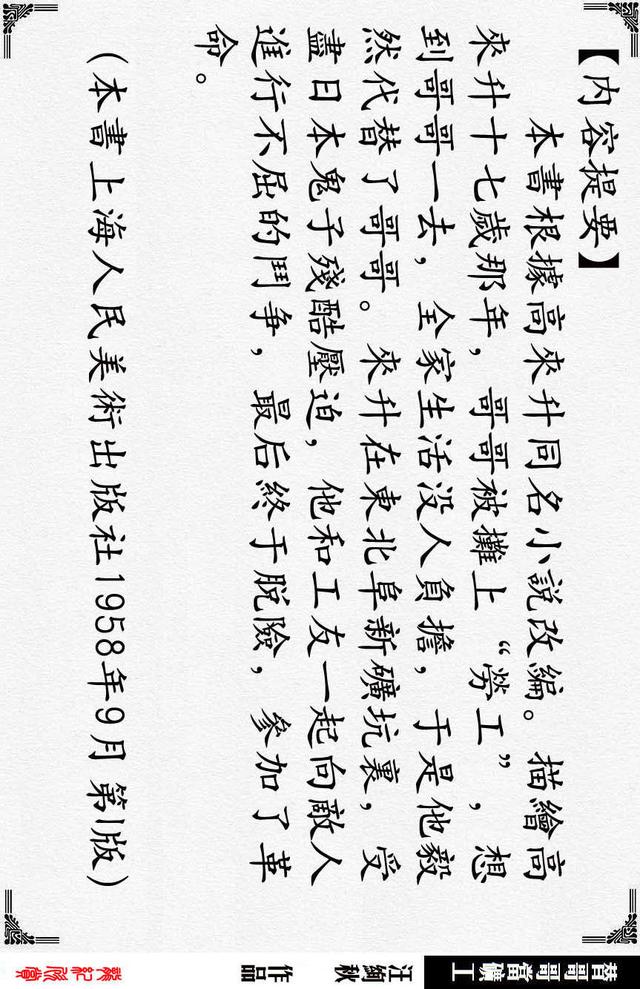 【内容提要】
本書根據高來升同名小說改編。描繪高
來升十七歲那年，哥哥被攤上“勞工”，想
到哥哥一去，全家生活没人負擔，于是他毅
然代替了哥哥。來升在東北阜新礦坑裏，受
盡日本鬼子殘酷壓迫，他和工友一起向敵人
進行不屈的鬥争，最后終于脱險，參加了革
命。
(本書上海人民美術出版社1958年9月 第1版)
替哥哥當礦工
汪絢秋
作品